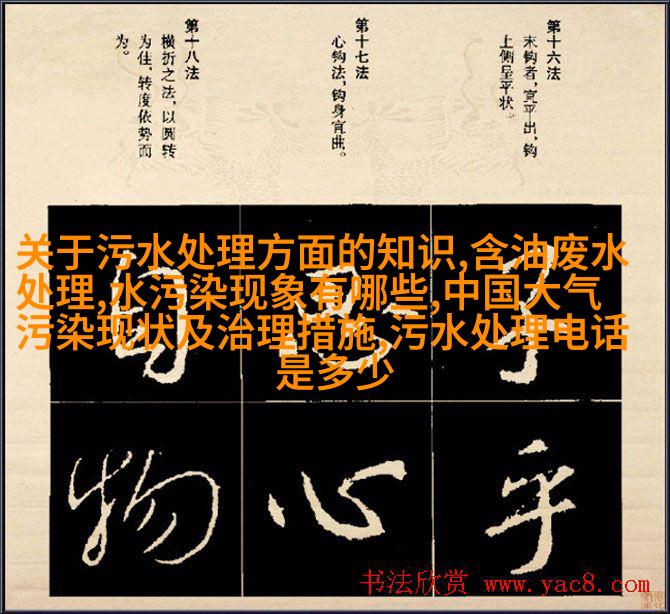 第十六法
末钩者，宜平出，钩
上侧呈平状
第十七法
心钩法，钩身宜曲。
第十八法
横折之法，以圆转
为佳，转度依势而
为。
关于污水处理方面的知识,含油废水
处理,水污染现象有哪些,中国大气
污染现状及治理措施,污水处理电话
是多少
子
思
自
乎
心
物
书法欣赏 www.yac8.com